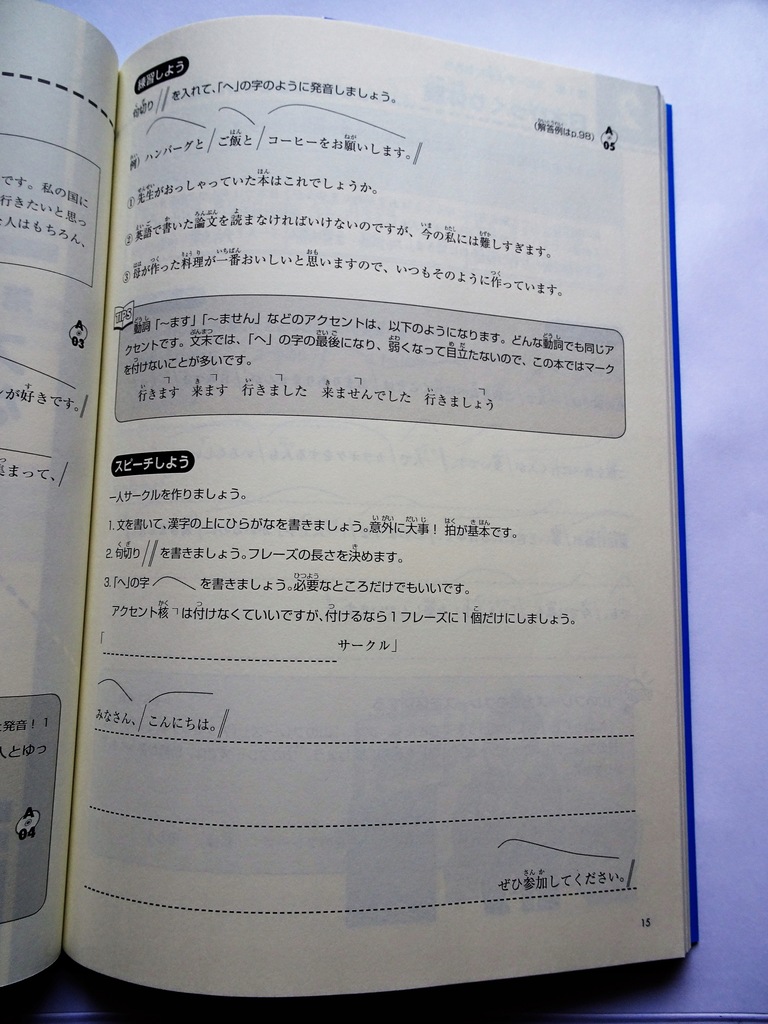 です。私の国に
行きたいと思っ
な人はもちろん、
A
03
が好きです。/
集まって、/
発音！1
人とゆっ
A
04
練習しよう
句切り // を入れて、「へ」の字のように発音しましょう。
(解答例はp.98)
A
05
例) ハンバーグと / ご飯と / コーヒーをお願いします。//
① 先生がおっしゃっていた本はこれでしょうか。
② 英語で書いた論文を読まなければいけないのですが、今の私には難しすぎます。
③ 母が作った料理が一番おいしいと思いますので、いつもそのように作っています。
TIPS
動詞「～ます」「～ません」などのアクセントは、以下のようになります。どんな動詞でも同じア
クセントです。文末では、「へ」の字の最後になり、弱くなって目立たないので、この本ではマーク
を付けないことが多いです。
行きます 来ます 行きました 来ませんでした 行きましょう
スピーチしよう
一人サークルを作りましょう。
1. 文を書いて、漢字の上にひらがなを書きましょう。意外に大事！ 拍が基本です。
2. 句切り // を書きましょう。フレーズの長さを決めます。
3. 「へ」の字 を書きましょう。必要なところだけでもいいです。
アクセント核 ㄱ は付けなくていいですが、付けるなら1フレーズに1個だけにしましょう。
「 サークル」
みなさん、/ こんにちは。//
ぜひ参加してください。//
15